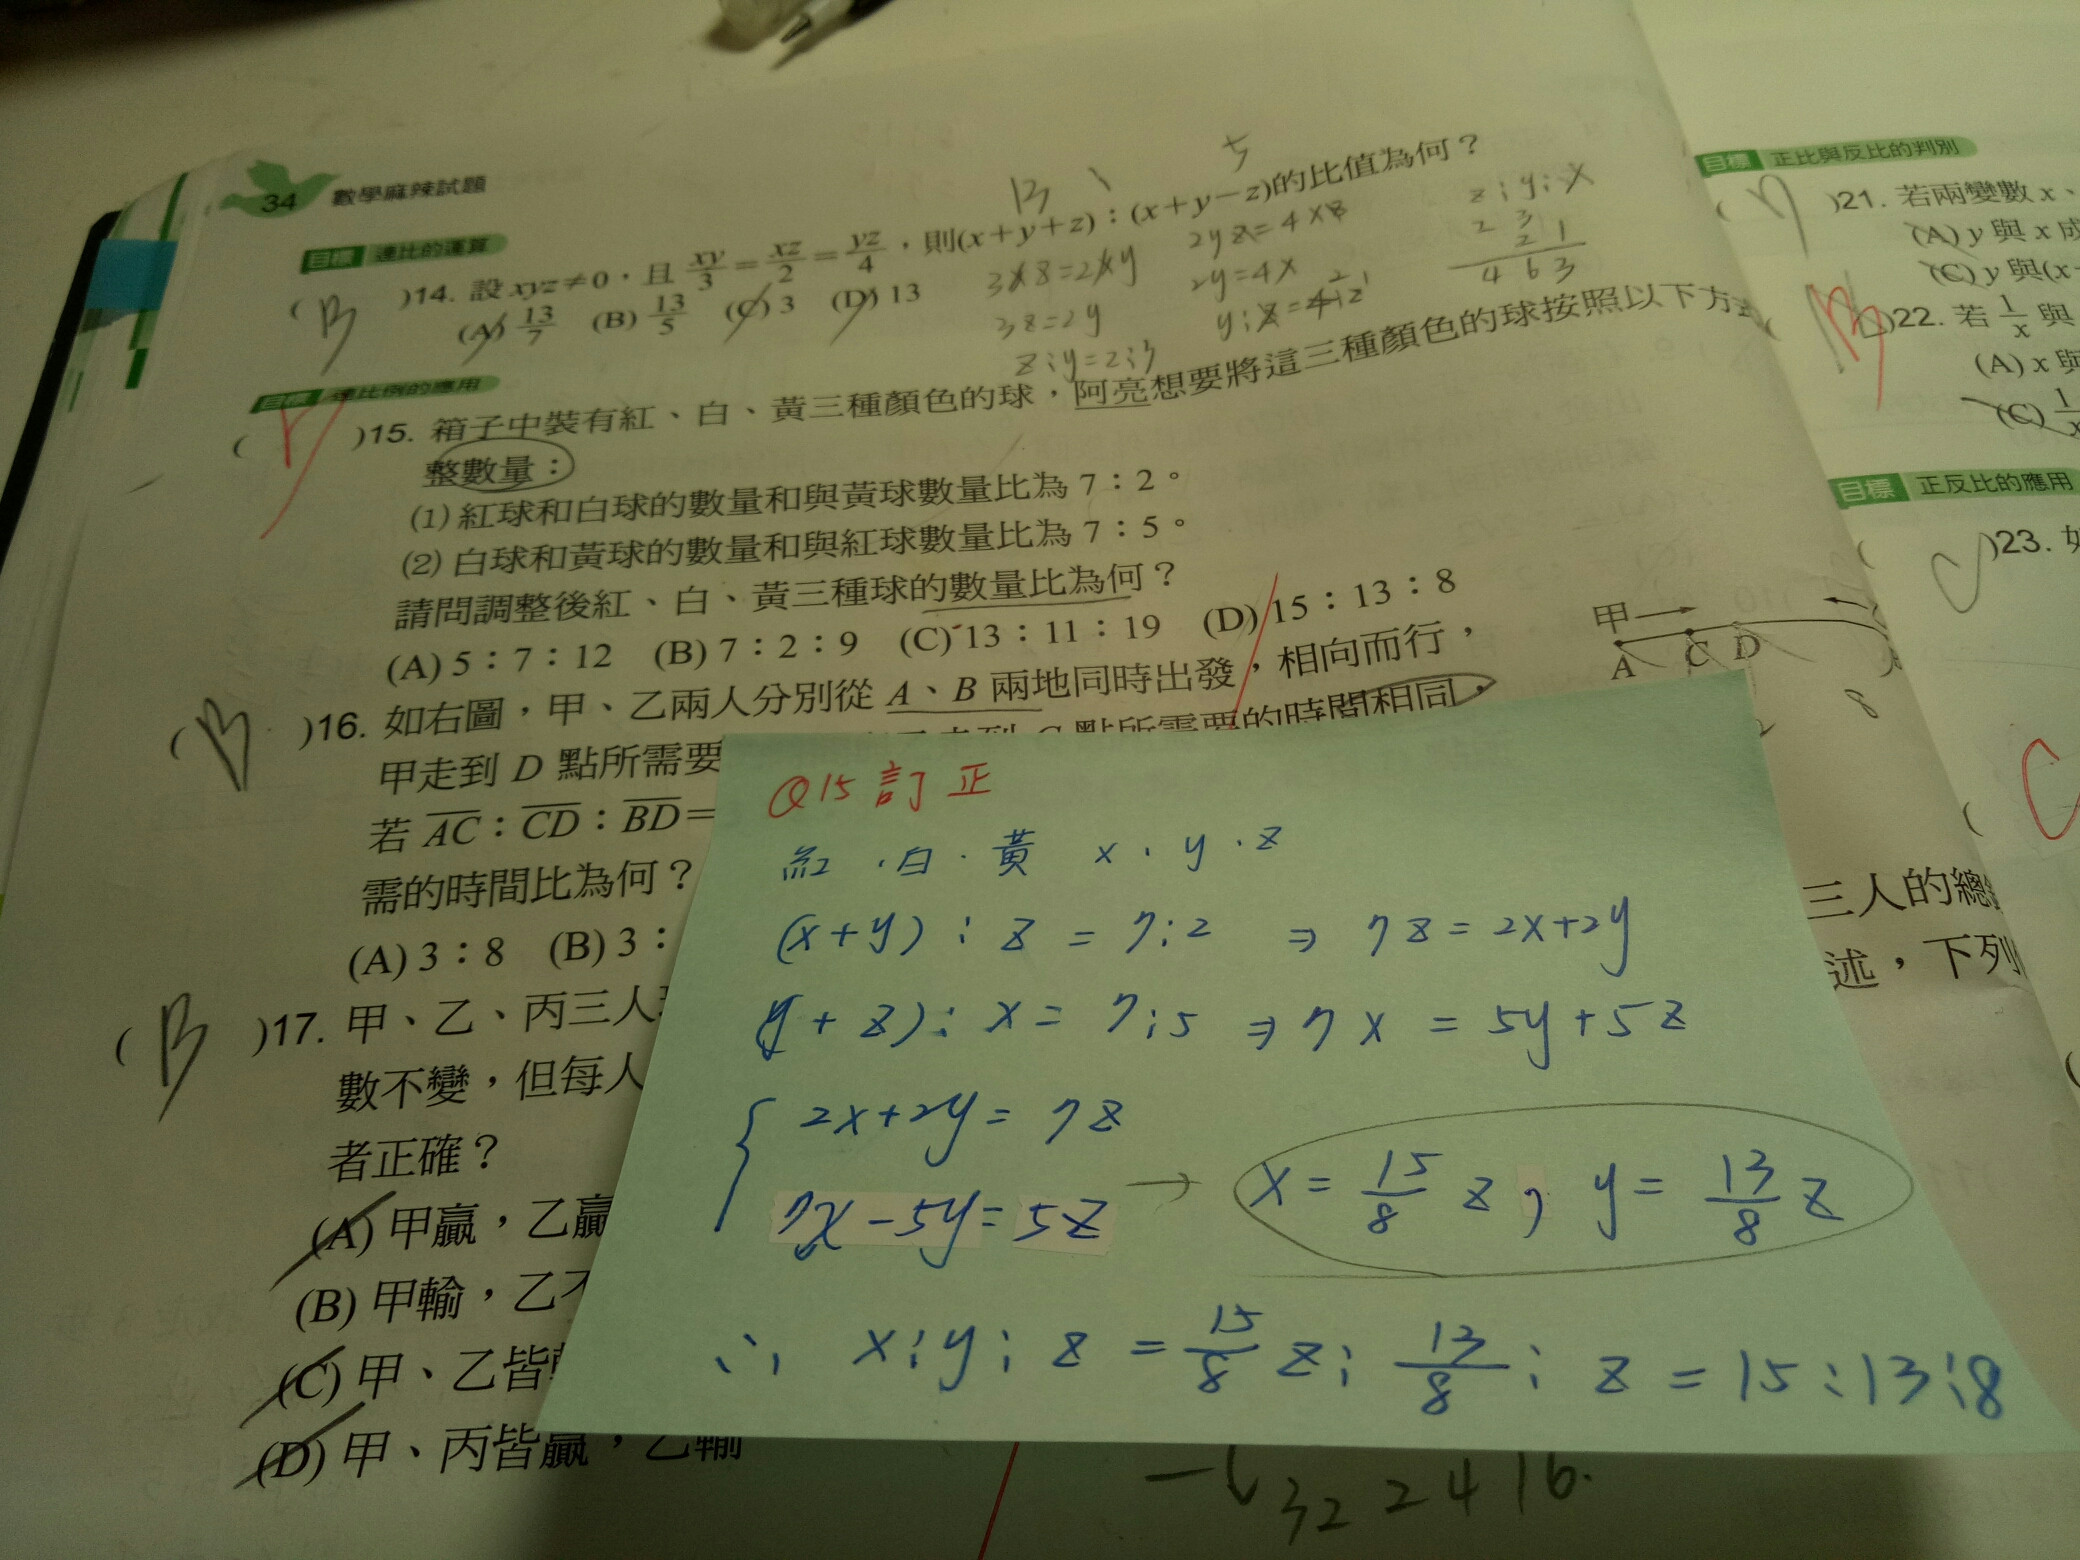 34 數學麻辣試題
目標 連比的運算
(B)14. 設 xyz≠0，且 xy/3 = xz/2 = yz/4，則(x+y+z)：(x+y−z)的比值為何？
(A) 13/7 (B) 13/5 (C) 3 (D) 13
13 : 5
2yz=4xz
2y=4x
3z=2y
z:y=2:3
z:y:x
2 3
2 1
4 6 3
目標 連比例的應用
(D)15. 箱子中裝有紅、白、黃三種顏色的球，阿亮想要將這三種顏色的球按照以下方
整數量：
(1) 紅球和白球的數量和與黃球數量比為 7：2。
(2) 白球和黃球的數量和與紅球數量比為 7：5。
請問調整後紅、白、黃三種球的數量比為何？
(A) 5：7：12 (B) 7：2：9 (C) 13：11：19 (D) 15：13：8
(B)16. 如右圖，甲、乙兩人分別從 A、B 兩地同時出發，相向而行，
甲走到 D 點所需要
點所需要的時間相同，
若 AC：CD：BD=
需的時間比為何？
(A) 3：8 (B) 3：
甲
A C D
8
(B)17. 甲、乙、丙三人
數不變，但每人
者正確？
(A) 甲贏，乙贏
(B) 甲輸，乙不
(C) 甲、乙皆
(D) 甲、丙皆贏，乙輸
Q15 訂正
紅、白、黃 x、y、z
(x+y) : z = 7:2 ⇒ 7z = 2x+2y
(y+z) : x = 7:5 ⇒ 7x = 5y+5z
2x+2y = 7z
7x−5y=5z → x = 15/8 z, y = 13/8 z
∴ x:y:z = 15/8 z : 13/8 : z = 15:13:8
32 2 4 16.
目標 正比與反比的判別
)21. 若兩變數 x、
(A) y 與 x 成
(C) y 與(x
(B)22. 若 1/x 與
(A) x 與
(C) 1/x
目標 正反比的應用
(C)23.
C
三人的總
述，下列